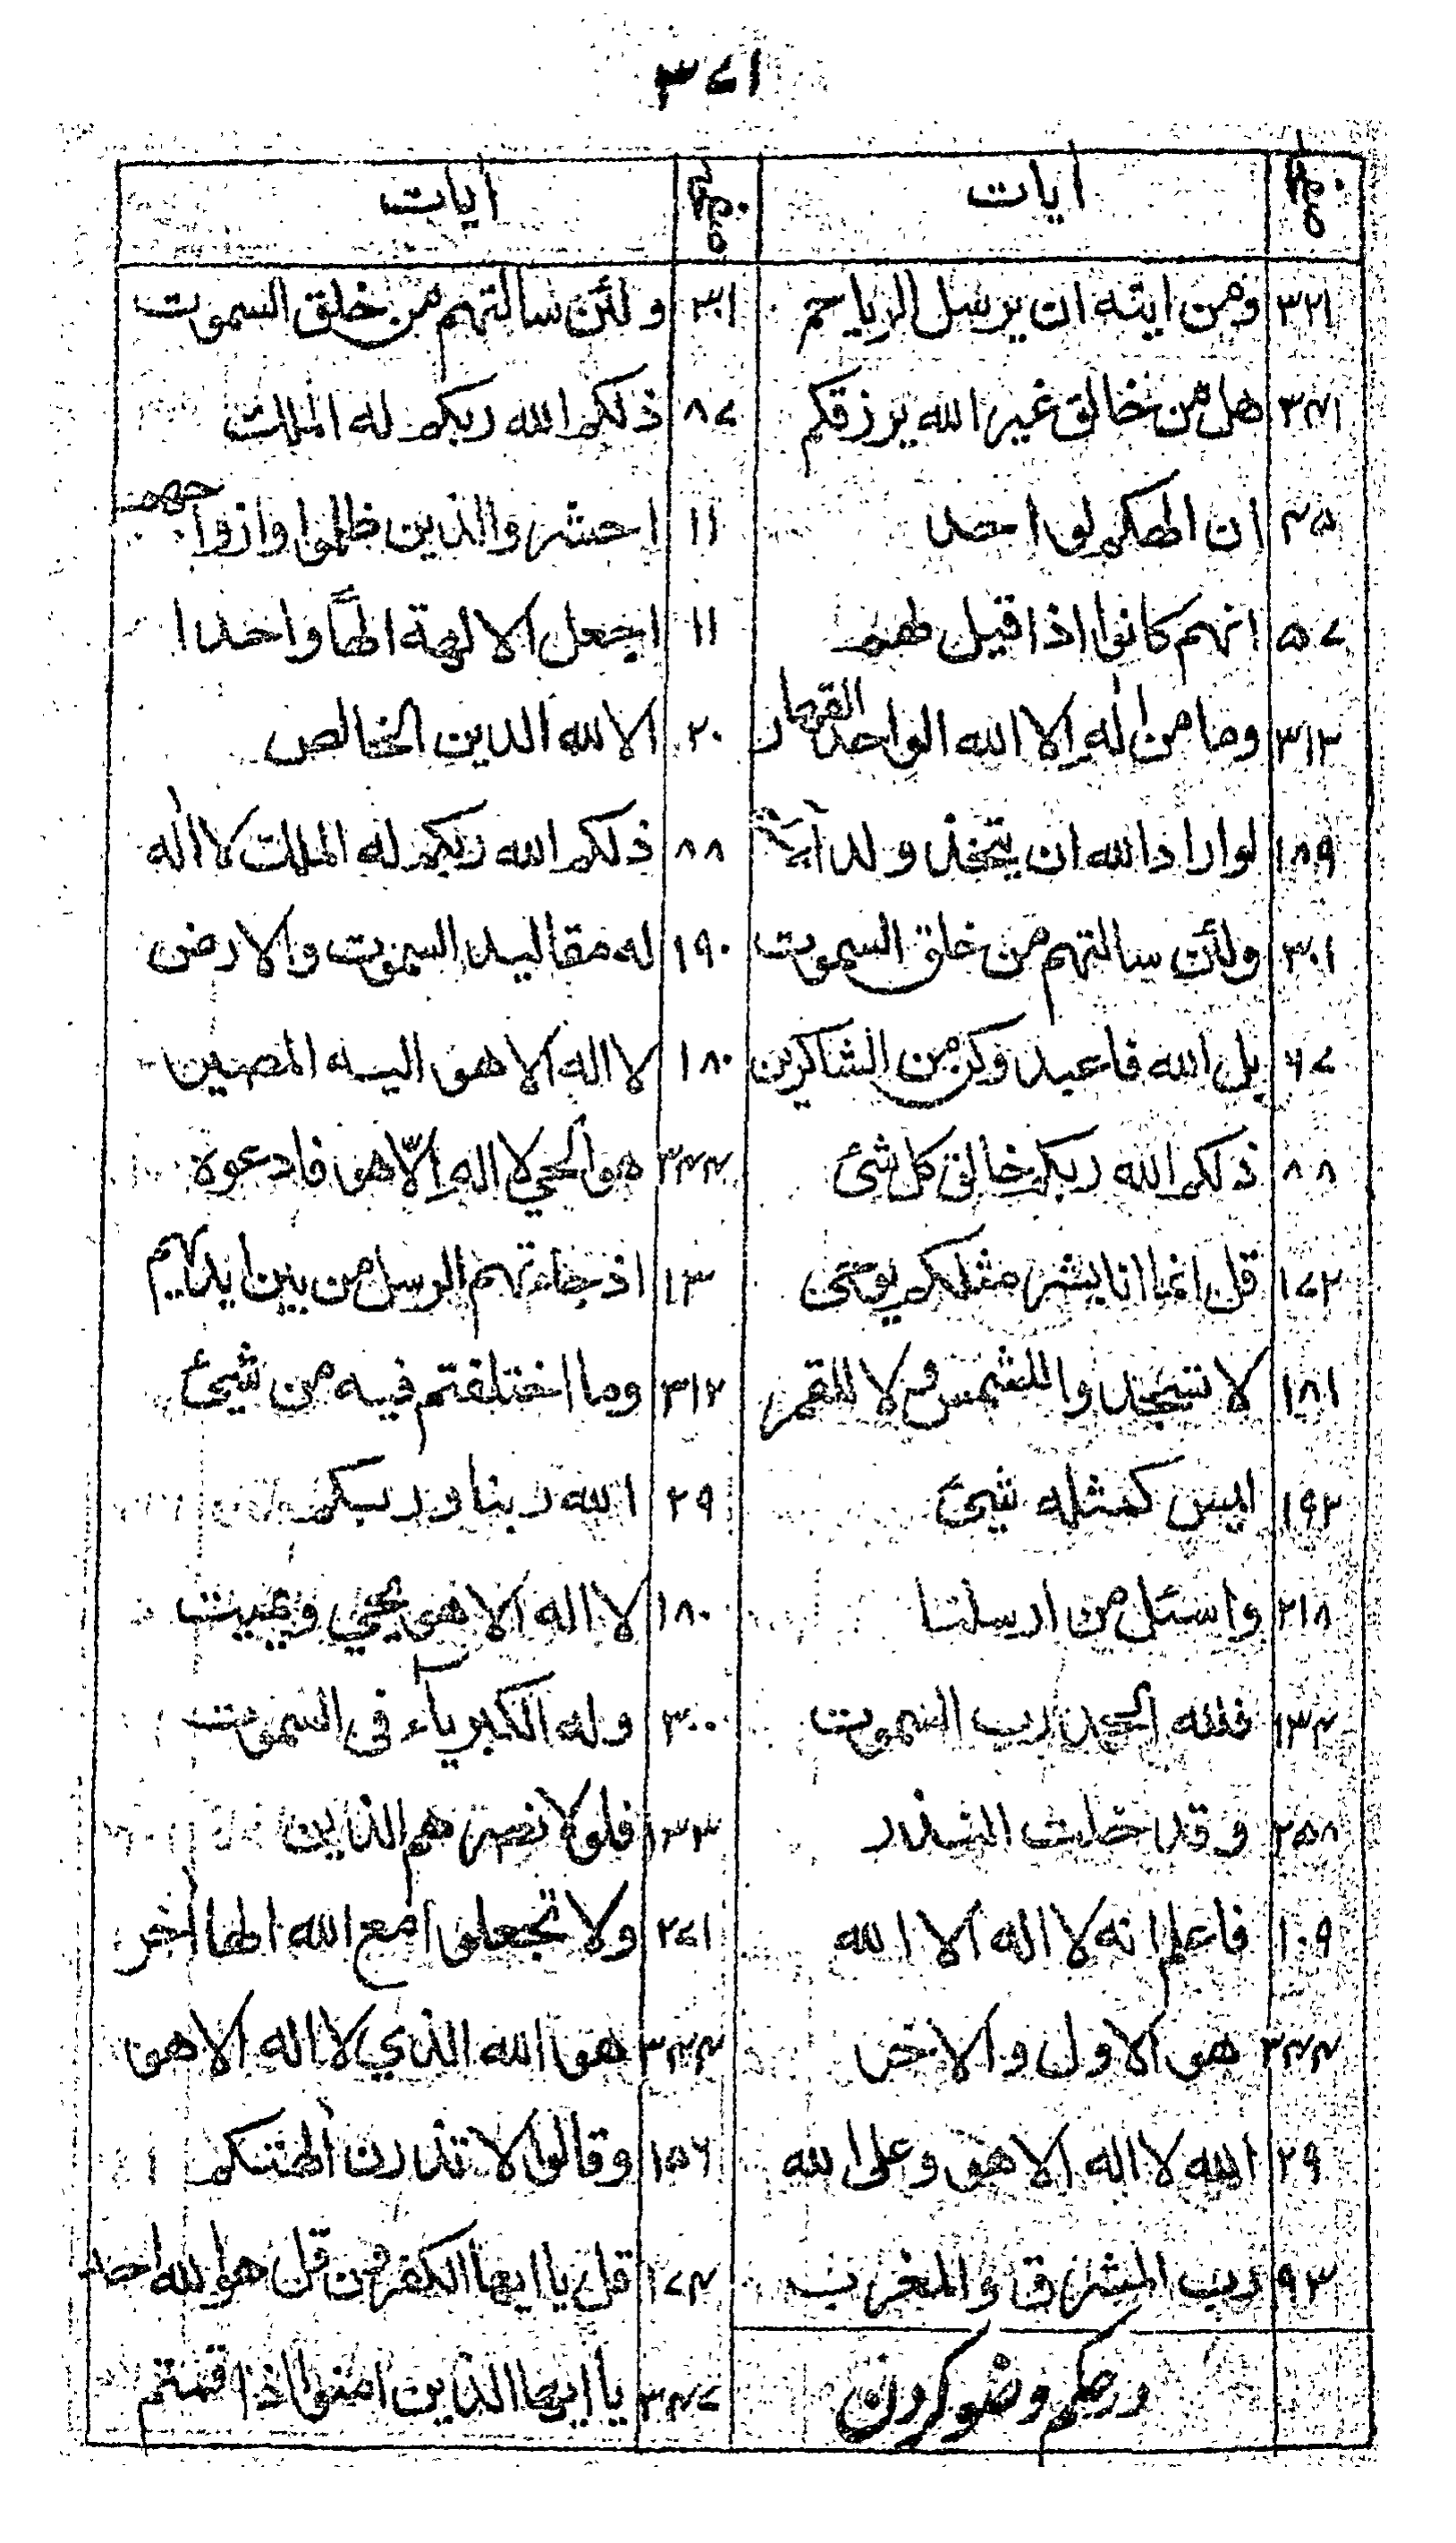 ۳۷۱
صفحه ایات صفحه ایات
۳۲۱ ومن ایته ان یرسل الریاح ۳۰۱ ولئن سالتهم من خلق السموت
۳۴۱ هل من خالق غیر الله یرزقکم ۸۷ ذلکم الله ربکم له الملت
۴۵ ان الهکم لواحد ۱۱ احشروالذین ظلموا وازواجهم
۵۷ انهم کانوا اذا قیل لهم ۱۱ اجعل الالهة الهاً واحدا
۳۱۳ وما من اله الا الله الواحد القهار ۲۰ الا لله الدین الخالص
۱۸۹ لو اراد الله ان یتخذ ولدا ۸۸ ذلکم الله ربکم له الملت لا اله
۳۰۱ ولئن سالتهم من خلق السموت ۱۹۰ له مقالید السموت والارض
۶۷ بل الله فاعبد وکن من الشاکرین ۱۸۰ لا اله الا هو الیه المصیر
۸۸ ذلکم الله ربکم خالق کل شئ ۳۴۴ هو الحی لا اله الّا هو فادعوه
۱۷۲ قل انما انا بشر مثلکم یوحی ۱۳ اذ جاءتهم الرسل من بین ایدیهم
۱۸۱ لا تسجدوا للشمس ولا للقمر ۳۱۲ وما اختلفتم فیه من شیئ
۱۹۲ لیس کمثله شیئ ۲۹ الله ربنا وربکم
۲۱۸ واسئل من ارسلنا ۱۸۰ لا اله الا هو یحیی ویمیت
۱۳۴ فلله الحمد رب السموت ۳۰۰ وله الکبریآء فی السموت
۲۵۸ وقد خلت النذر ۱۳۳ فلولا نصرهم الذین
۱۰۹ فاعلم انه لا اله الا الله ۲۷۱ ولا تجعلوا مع الله الها اخر
۳۴۴ هو الاول والاخر ۳۴۴ هو الله الذی لا اله الا هو
۲۹ الله لا اله الا هو وعلی الله ۱۵۶ وقالوا لا تذرن الهتکم
۹۳ رب المشرق والمغرب ۱۷۴ قل یا ایها الکفرون قل هو الله احد
درحکم وضو کردن ۳۴۷ یا ایها الذین امنوا اذا قمتم